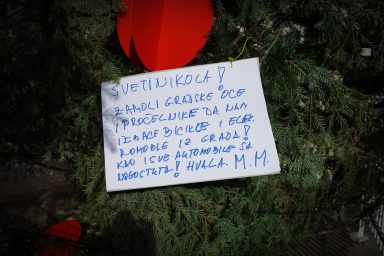 SVETI NIKOLA!
ZAMOLI GRADSKE OCE
I PROČELNIKE DA NAM
IZBACE BICIKLE I ELEK.
ROMOBILE IZ GRADA!
KAO I SVE AUTOMOBILE SA
NOGOSTUPA! HVALA. M.M.